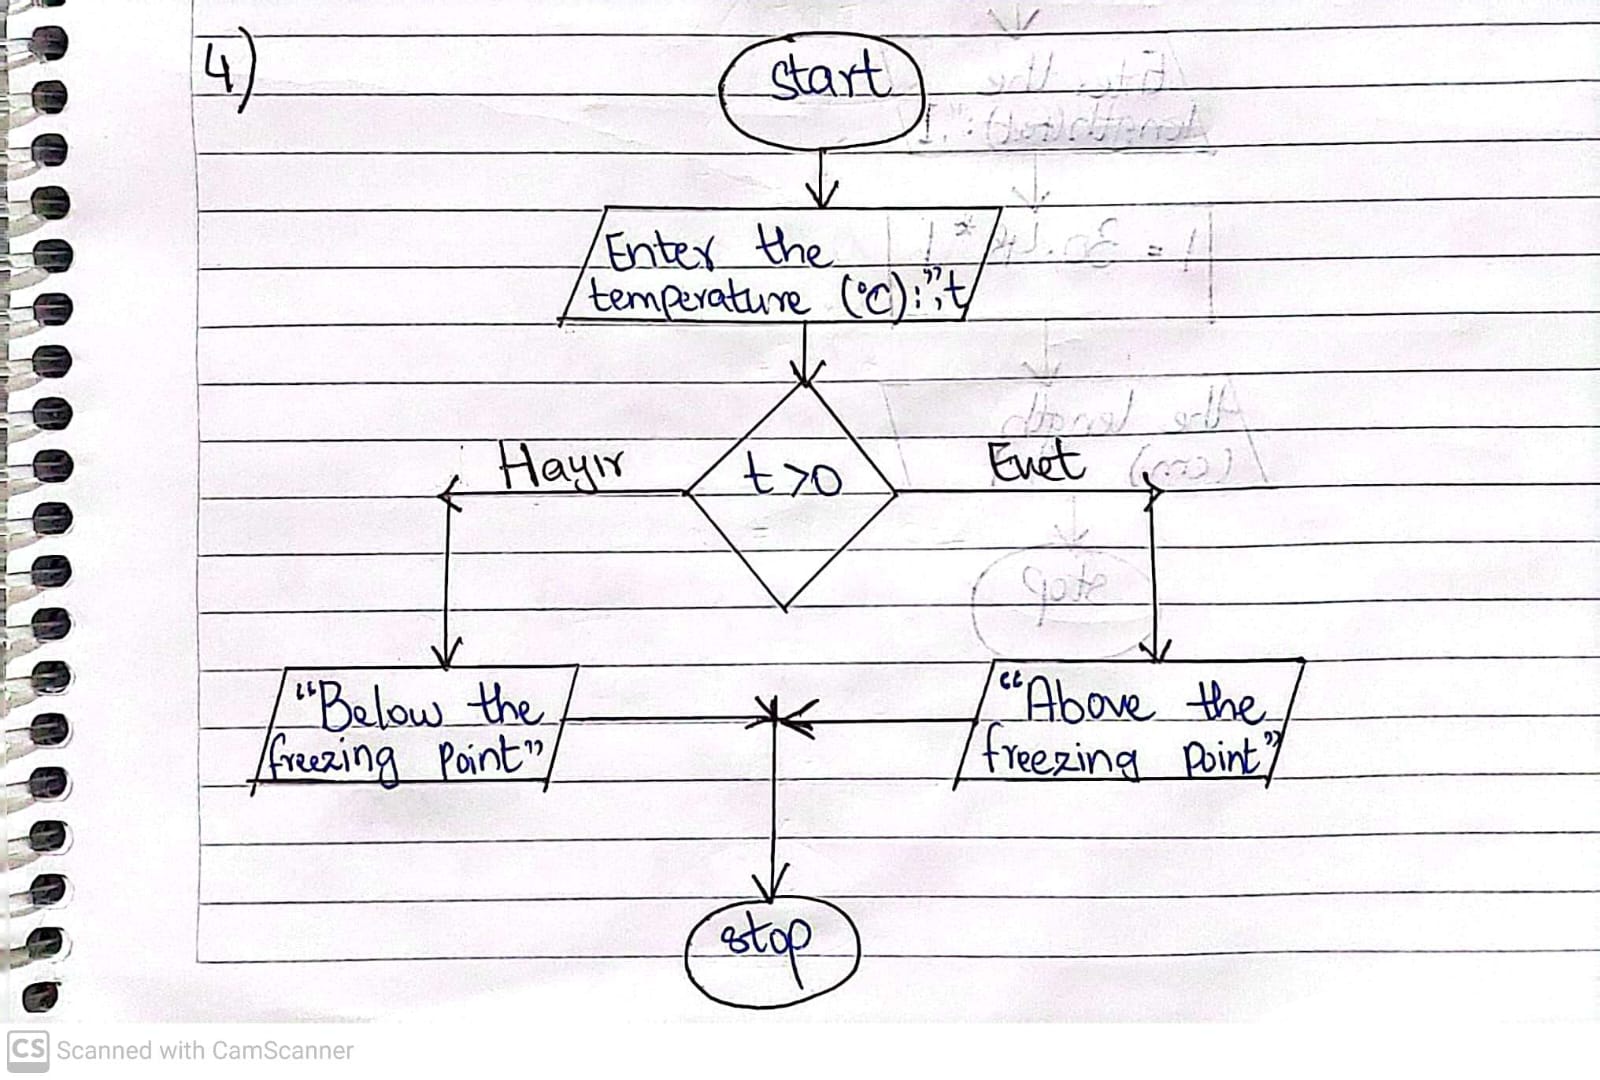 4)
start
Enter the
temperature (°C):",t
t>0
Hayır
Evet
"Below the
freezing point"
"Above the
freezing point"
stop
CS Scanned with CamScanner